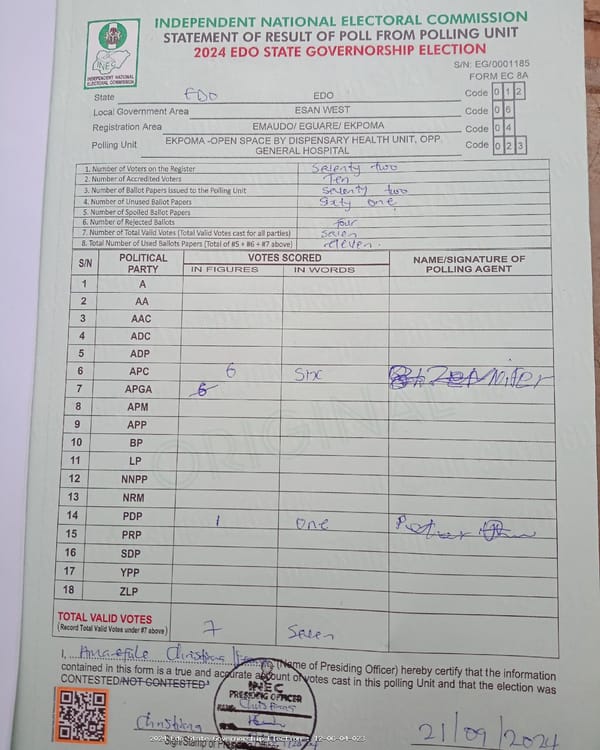 INDEPENDENT NATIONAL ELECTORAL COMMISSION
STATEMENT OF RESULT OF POLL FROM POLLING UNIT
2024 EDO STATE GOVERNORSHIP ELECTION
INEC
INDEPENDENT NATIONAL ELECTORAL COMMISSION
S/N: EG/0001185
FORM EC 8A
State EDO EDO Code 0 1 2
Local Government Area ESAN WEST Code 0 6
Registration Area EMAUDO/ EGUARE/ EKPOMA Code 0 4
Polling Unit EKPOMA -OPEN SPACE BY DISPENSARY HEALTH UNIT, OPP. GENERAL HOSPITAL Code 0 2 3
1. Number of Voters on the Register Seventy two
2. Number of Accredited Voters Ten
3. Number of Ballot Papers Issued to the Polling Unit Seventy two
4. Number of Unused Ballot Papers Sixty one
5. Number of Spoiled Ballot Papers
6. Number of Rejected Ballots four
7. Number of Total Valid Votes (Total Valid Votes cast for all parties) Seven
8. Total Number of Used Ballots Papers (Total of #5 + #6 + #7 above) eleven.
S/N POLITICAL PARTY VOTES SCORED NAME/SIGNATURE OF POLLING AGENT
IN FIGURES IN WORDS
1 A
2 AA
3 AAC
4 ADC
5 ADP
6 APC 6 Six
7 APGA 6
8 APM
9 APP
10 BP
11 LP
12 NNPP
13 NRM
14 PDP 1 One
15 PRP
16 SDP
17 YPP
18 ZLP
ORIGINAL
TOTAL VALID VOTES 7 Seven
(Record Total Valid Votes under #7 above)
I, Christiana (Name of Presiding Officer) hereby certify that the information
contained in this form is a true and accurate account of votes cast in this polling Unit and that the election was
CONTESTED/NOT CONTESTED
INEC
PRESIDING OFFICER
Christiana
21/09/2024
2024 Edo State Governorship Election - 12-06-04-023